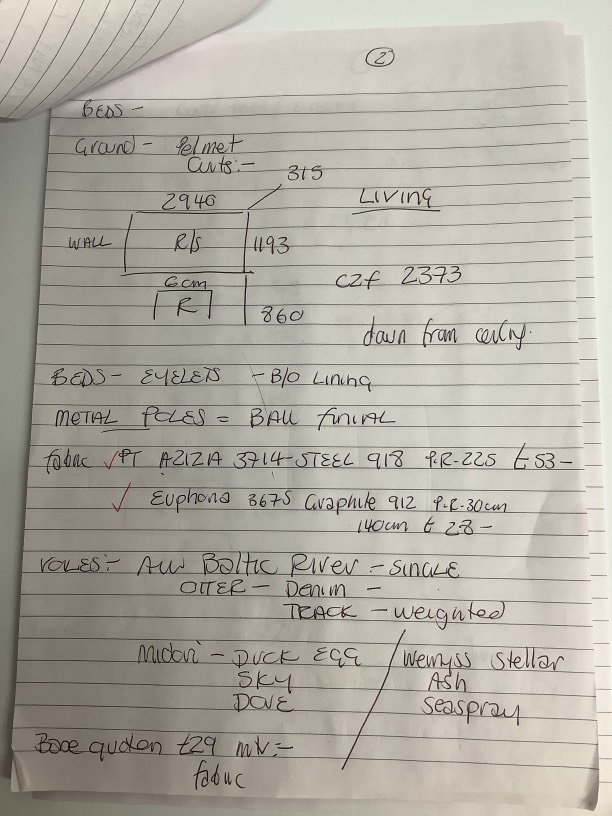 2
BEDS -
Ground - Pelmet
Curts:-
315
2940
Living
WALL R/S 1193
6cm
C2f 2373
R
860
down from ceiling.
BEDS - EYELETS - B/O Lining
METAL POLES = BALL FINIAL
fabric ✓ PT AZIZA 3714-STEEL 918 P.R-225 £53-
✓ Euphoria 3675 Graphite 912 P.R-30cm
140cm £ 28-
VOILES:- Baltic River - SINGLE
OTTER - Denim -
TRACK - weighted
Midori - DUCK EGG / Wemyss Stellar
SKY Ash
DOVE Seaspray
Base £29 :-
fabric